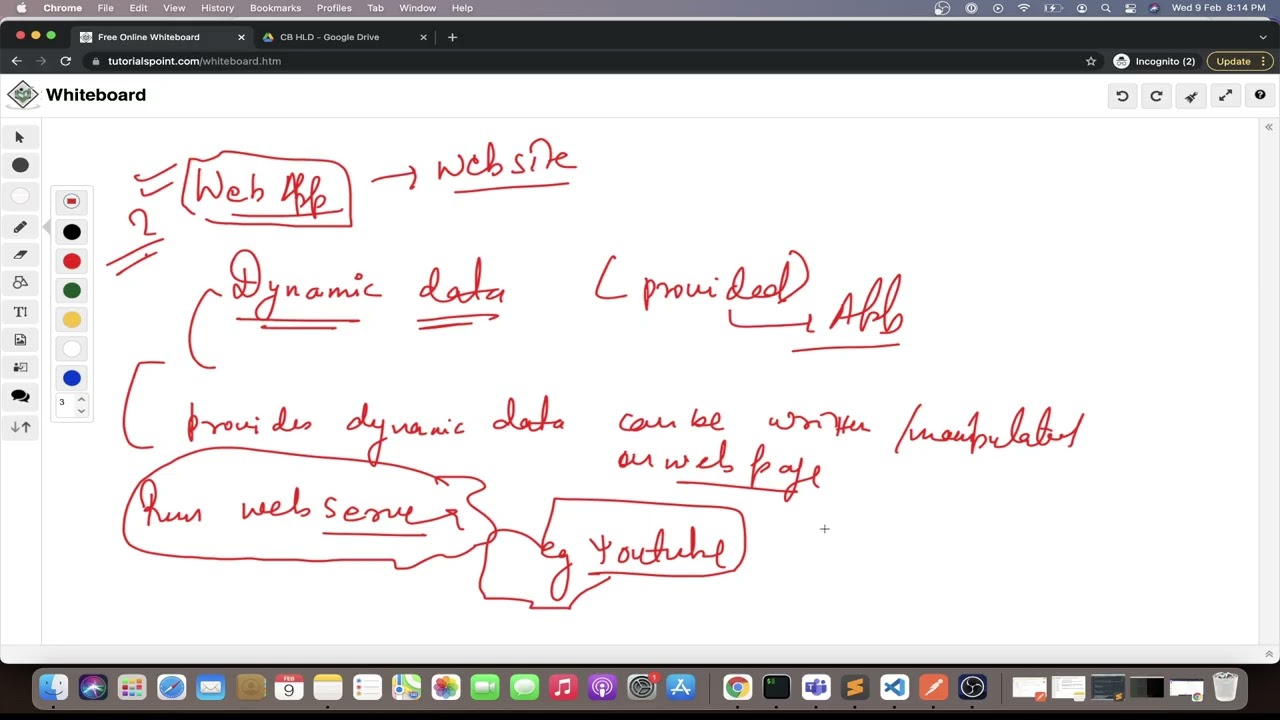 Chrome File Edit View History Bookmarks Profiles Tab Window Help Wed 9 Feb 8:14 PM
Free Online Whiteboard CB HLD - Google Drive
tutorialspoint.com/whiteboard.htm Incognito (2) Update
Whiteboard
Web App → website
2
Dynamic data (provided) App
provides dynamic data can be written /manipulated
on web page
Run web server
eg Youtube
TI
3
FEB
9
1